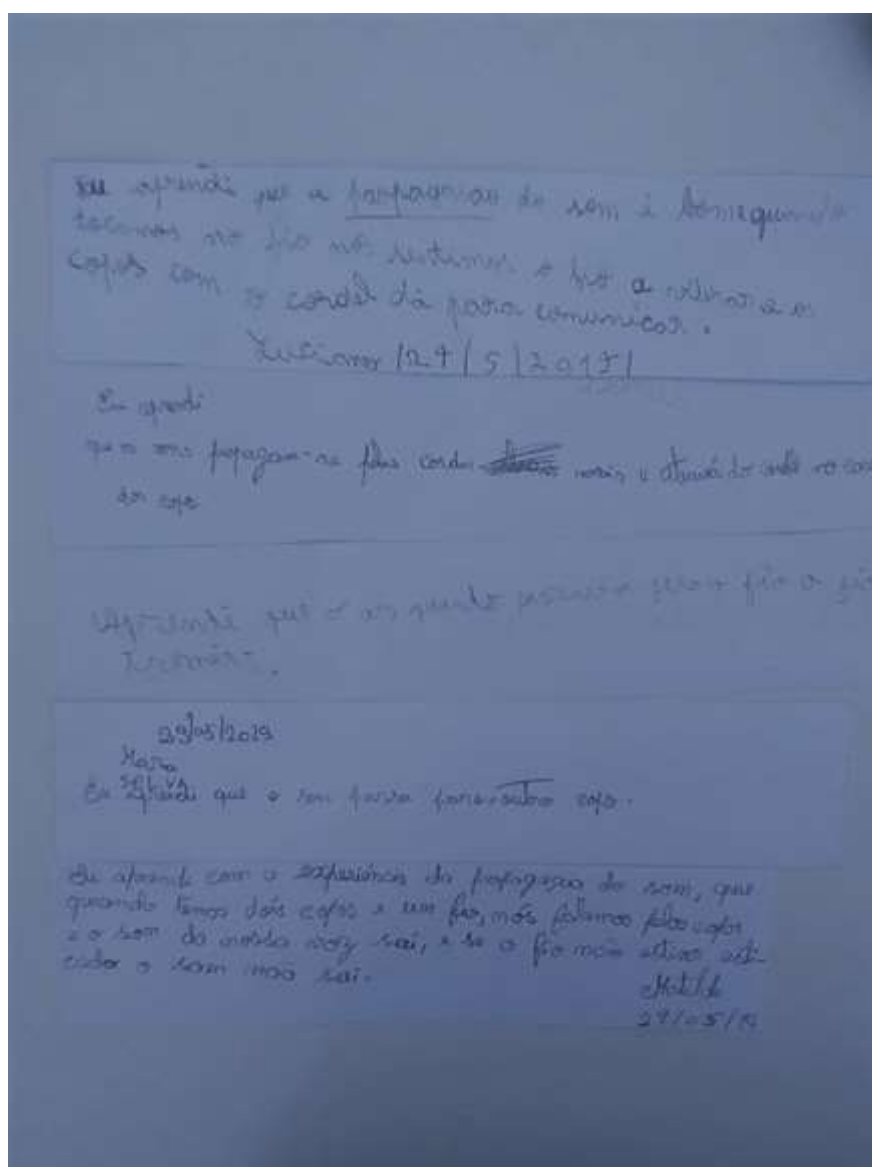 Eu aprendi que a propagação do som é
tocamos no fio nós sentimos o fio a vibrar e os
copos com o cordel dá para comunicar.
Luciana
Eu aprendi
que o som propagam-se pelas cordas vocais e através do cordel no caso
dos copos
Aprendi que o fio a fio
29/05/2019
Mara
Silva
Eu aprendi que o som passa para outro copo.
Eu aprendi com a experiência da propagação do som, que
quando temos dois copos e um fio, nós falamos pelos copos
e o som da nossa voz sai, e se o fio não estiver esti-
cado o som não sai.
Matilde
29/05/19